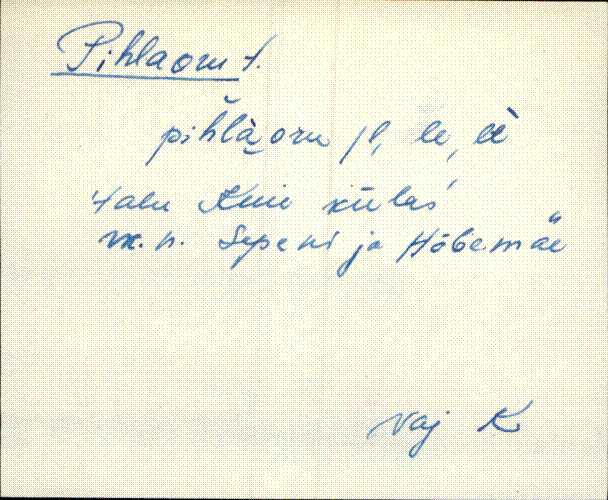 Pihlaoru t.
pihlàoru /l, le, lt
talu Kuie külas
m. n. Sepeni ja Hõbemäe
Vaj K